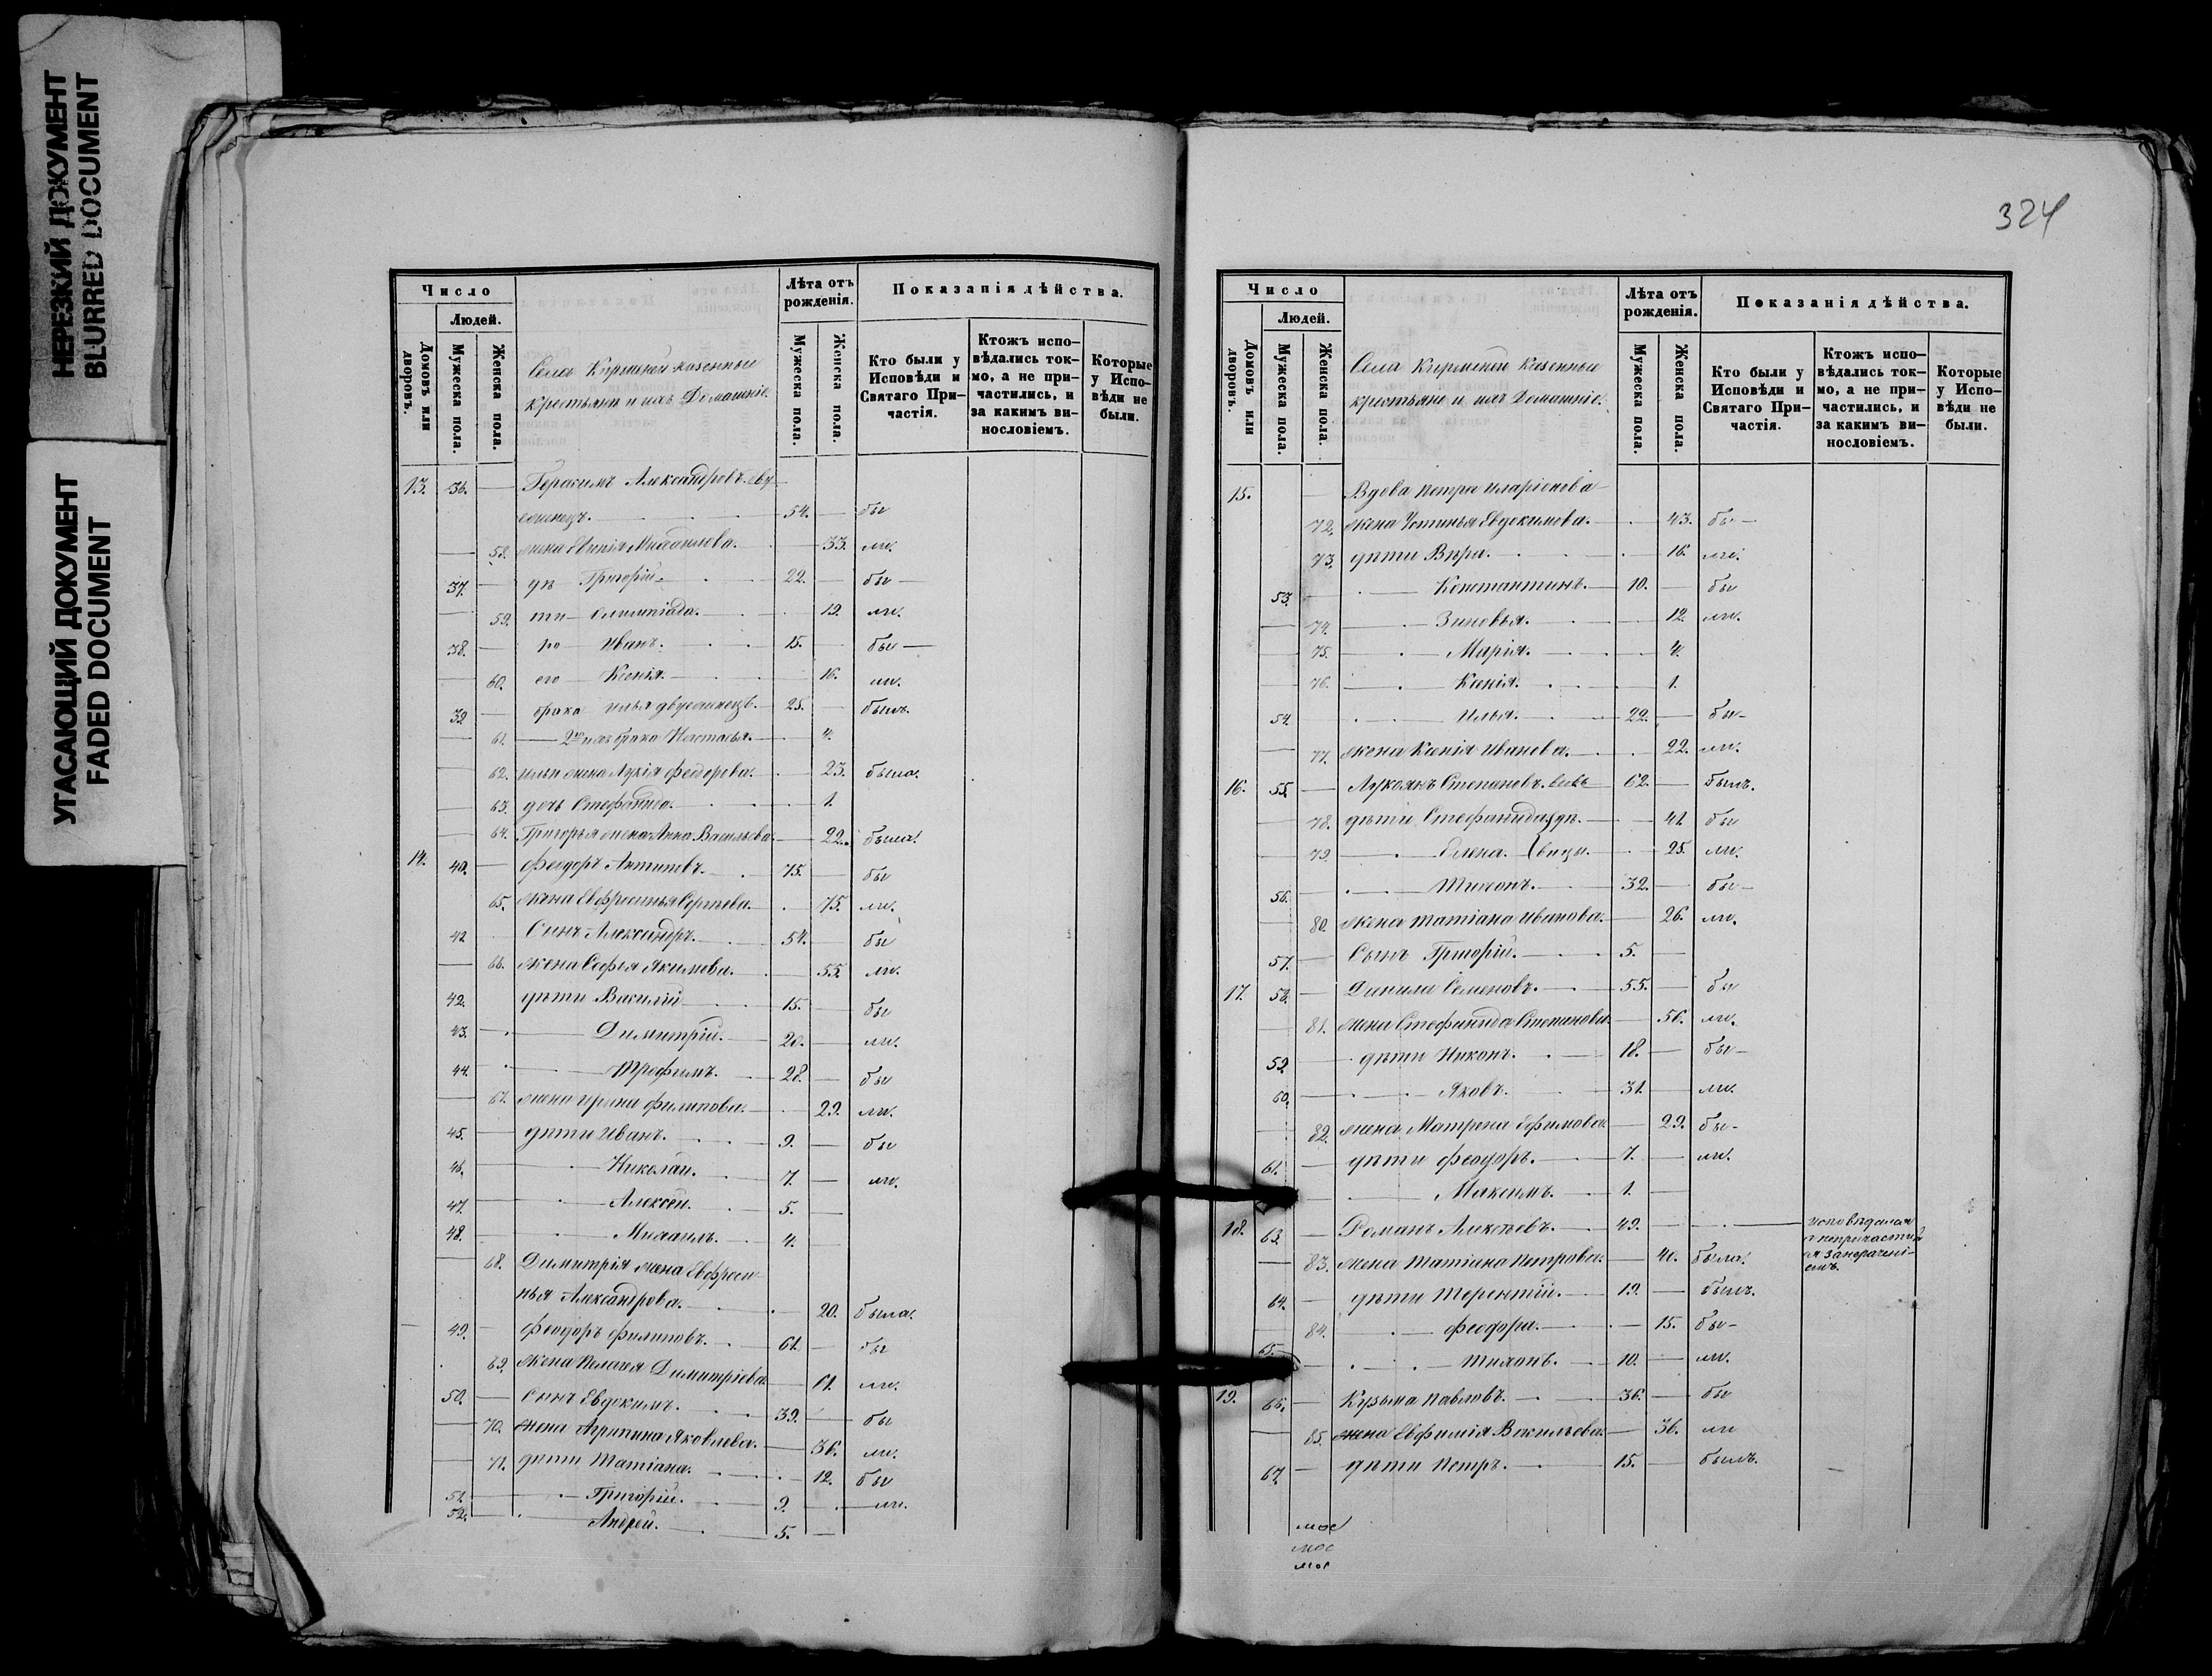 НЕРЕЗКИЙ ДОКУМЕНТ
BLURRED DOCUMENT
УГАСАЮЩИЙ ДОКУМЕНТ
FADED DOCUMENT
Число
Людей.
Домовъ или дворовъ.
Мужеска пола.
Женска пола.
Села казенные
крестьяне и ихъ Домашніе.
Лѣта отъ рожденія.
Мужеска пола.
Женска пола.
Показанія дѣйства.
Кто были у Исповѣди и Святаго Причастія.
Ктожъ исповѣдались токмо, а не причастились, и за какимъ винословіемъ.
Которые у Исповѣди не были.
13. 36. Герасимъ Александровъ
54. бы
58. жена Михаилова. 33. ли.
37. дѣ Григорій. 22. бы
59. ти Олимпіада. 19. ли.
38. Иванъ. 15. бы
60. его Ксенія. 16. ли.
39. брака Илья 28. былъ.
61. брака Настасья. 4.
62. Ильи жена Лукія Феодорова. 23. была.
63. дочь Стефанида. 1.
64. Григорья жена Анна Васильева. 22. была.
14. 40. Феодоръ Антиповъ. 75. бы
65. жена Евфросинья Сергѣева. 75. ли.
41. Сынъ Александръ. 54. бы
66. жена Софья Якимова. 55. ли.
42. дѣти Василій 15. бы
43. Димитрій. 20. ли.
44. Трофимъ. 28. бы
67. жена Ирина Филипова. 29. ли.
45. дѣти Иванъ. 9. бы
46. Николай. 7. ли.
47. Алексѣй. 5.
48. Михаилъ. 4.
68. Димитрія жена Евфроси
нья Александрова. 20. была.
49. Феодоръ Филиповъ. 61. бы
69. жена Пелагея Димитріева. 61. ли.
50. Сынъ Евдокимъ. 39. бы
70. жена Агрипина Яковлева. 36. ли.
71. дѣти Татіана. 12. бы
51. Григорій. 9. ли.
52. Андрей. 5.
324
Число
Людей.
Домовъ или дворовъ.
Мужеска пола.
Женска пола.
Села казенные
крестьяне и ихъ Домашніе.
Лѣта отъ рожденія.
Мужеска пола.
Женска пола.
Показанія дѣйства.
Кто были у Исповѣди и Святаго Причастія.
Ктожъ исповѣдались токмо, а не причастились, и за какимъ винословіемъ.
Которые у Исповѣди не были.
15. Вдова Петра Иларіонова
72. жена Устинья Евдокимова. 43. бы
73. дѣти Вѣра. 16. ли.
53. Константинъ. 10. бы
74. Зиновья. 12. ли.
75. Марія. 4.
76. Ксенія. 1.
54. Илья. 22. бы
77. жена Ксенія Иванова. 22. ли.
16. 55. Лукоянъ Степановъ. 62. былъ.
78. дѣти Стефанида дѣ 41. бы
79. Елена. вицы. 25. ли.
56. Тихонъ. 32. бы
80. жена Татіана Иванова. 26. ли.
57. Сынъ Григорій. 5.
17. 58. Данила Семеновъ. 55. бы
81. жена Стефанида Степанова. 56. ли.
59. дѣти Никонъ. 18. бы
60. Яковъ. 31. ли.
82. жена Матрена Ефимова 29. бы
61. дѣти Феодоръ. 7. ли.
Максимъ. 1.
18. 63. Романъ Алексѣевъ. 49. исповѣдался
и непричасти
ся за
83. жена Татіана Петрова. 40. была.
64. дѣти Терентій. 19. былъ.
84. Феодора. 15. бы
65. Тихонъ. 10. ли.
19. 66. Кузьма Павловъ. 36. бы
85. жена Евфимія Васильева. 36. ли
67. дѣти Петръ. 15. былъ.